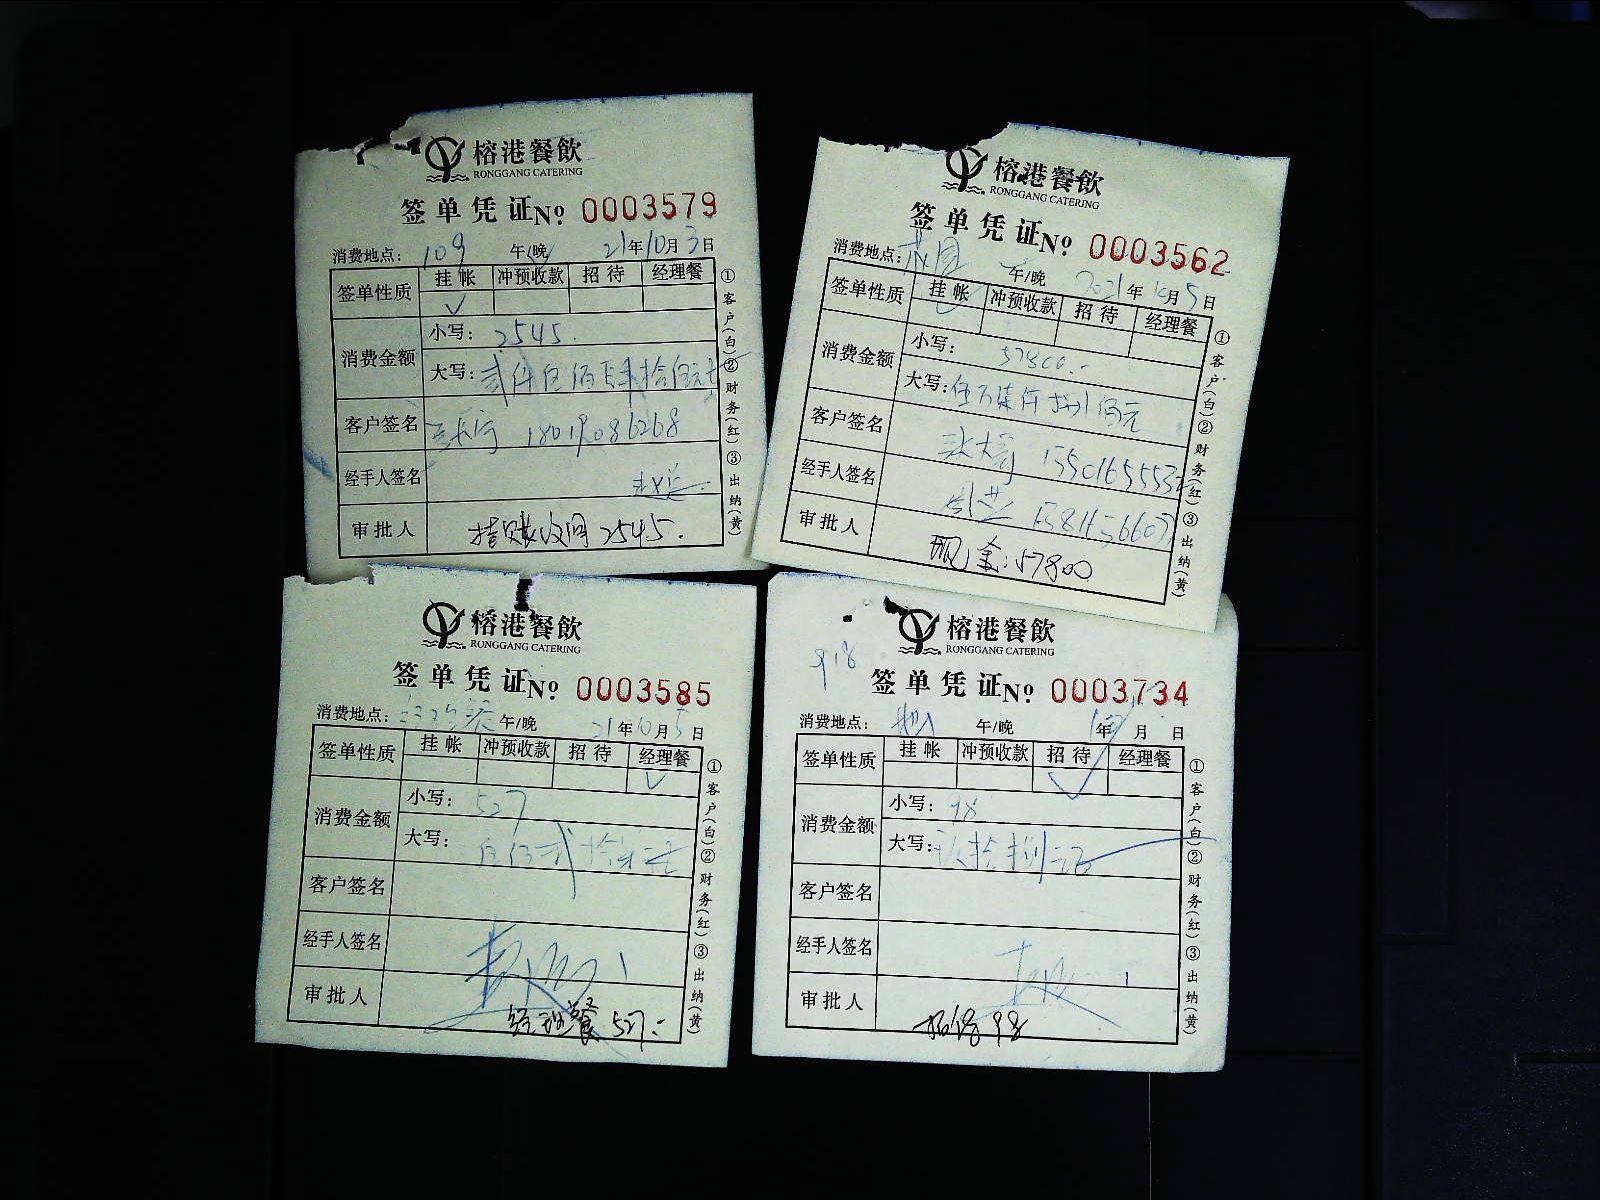 榕港餐飲
RONGGANG CATERING
签单凭证№ 0003579
消费地点: 109 午/晚 21年10月3日
签单性质 挂帐 冲预收款 招待 经理餐
✓
消费金额 小写: 2545.
大写: 贰仟伍佰肆拾伍元
客户签名 18019086268
经手人签名
审批人 挂账收回2545.
①客户(白)②财务(红)③出纳(黄)
榕港餐飲
RONGGANG CATERING
签单凭证№ 0003562
消费地点: 午/晚 2021年10月5日
签单性质 挂帐 冲预收款 招待 经理餐
✓
消费金额 小写: 57800.-
大写: 伍万柒仟捌佰元
客户签名
经手人签名
审批人 现金:57800
①客户(白)②财务(红)③出纳(黄)
榕港餐飲
RONGGANG CATERING
签单凭证№ 0003585
消费地点: 午/晚 21年10月5日
签单性质 挂帐 冲预收款 招待 经理餐
✓
消费金额 小写: 527
大写: 伍佰贰拾柒元
客户签名
经手人签名
审批人 经理餐 527.-
①客户(白)②财务(红)③出纳(黄)
榕港餐飲
RONGGANG CATERING
918
签单凭证№ 0003734
消费地点: 午/晚 年 月 日
签单性质 挂帐 冲预收款 招待 经理餐
✓
消费金额 小写: 98
大写: 玖拾捌元
客户签名
经手人签名
审批人 招待98
①客户(白)②财务(红)③出纳(黄)